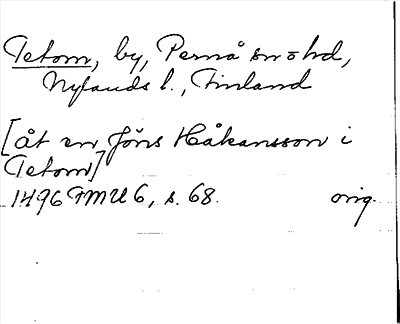 Tetom, by, Pernå sn o hd,
Nylands l., Finland
[åt en Jöns Håkansson i
Tetom]
1496 FMU 6, s. 68. orig.